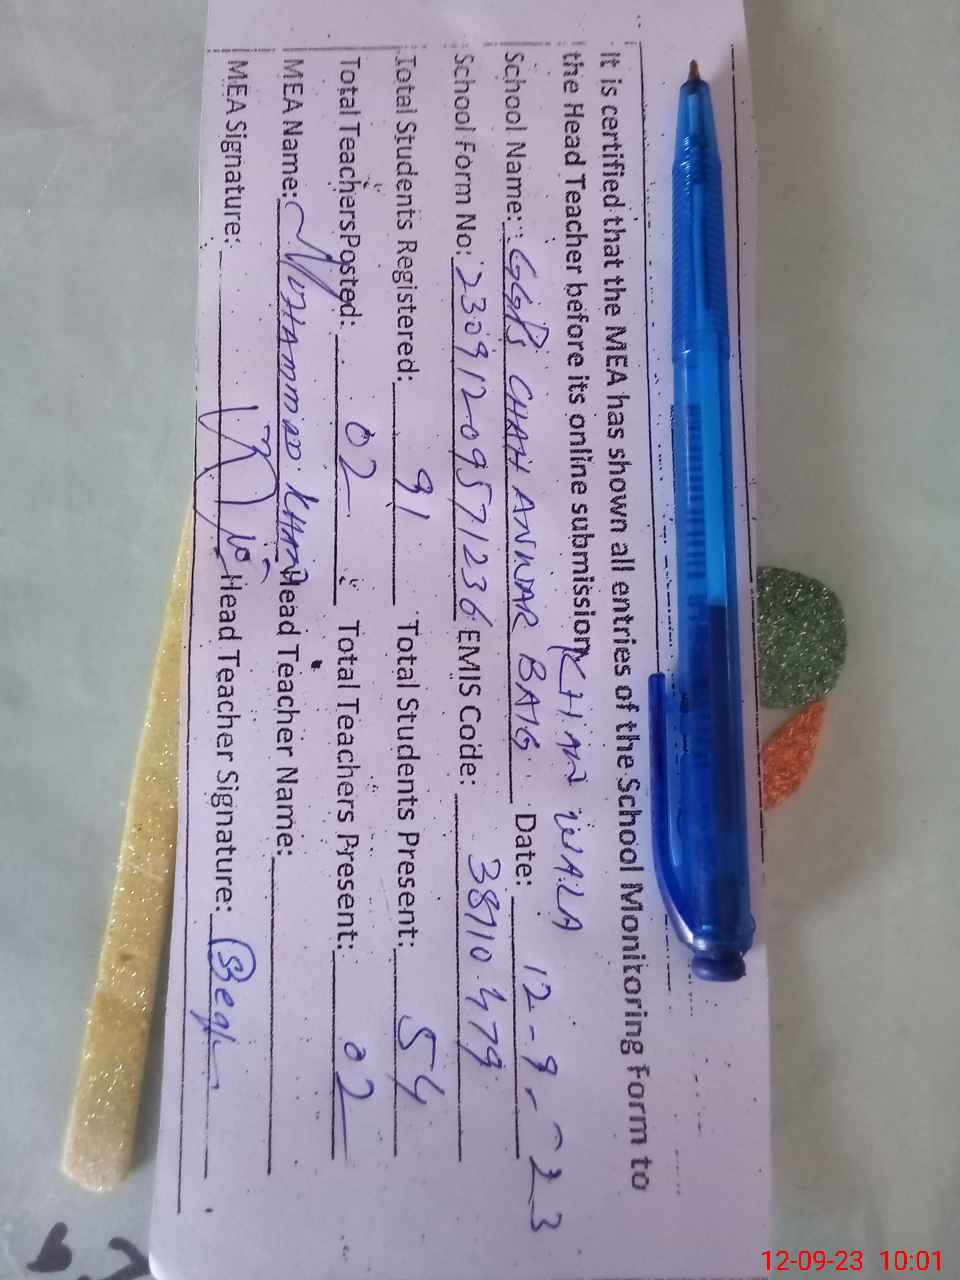 It is certified that the MEA has shown all entries of the School Monitoring Form to
the Head Teacher before its online submission KHAN WALA
School Name: GGPS CHAH ANWAR BAIG Date: 12-9-23
School Form No: 23091209571236 EMIS Code: 38110479
Total Students Registered: 91 Total Students Present: 54
Total Teachers Posted: 02 Total Teachers Present: 02
MEA Name: MUHAMMAD KHAN Head Teacher Name:
MEA Signature: Head Teacher Signature:
12-09-23 10:01